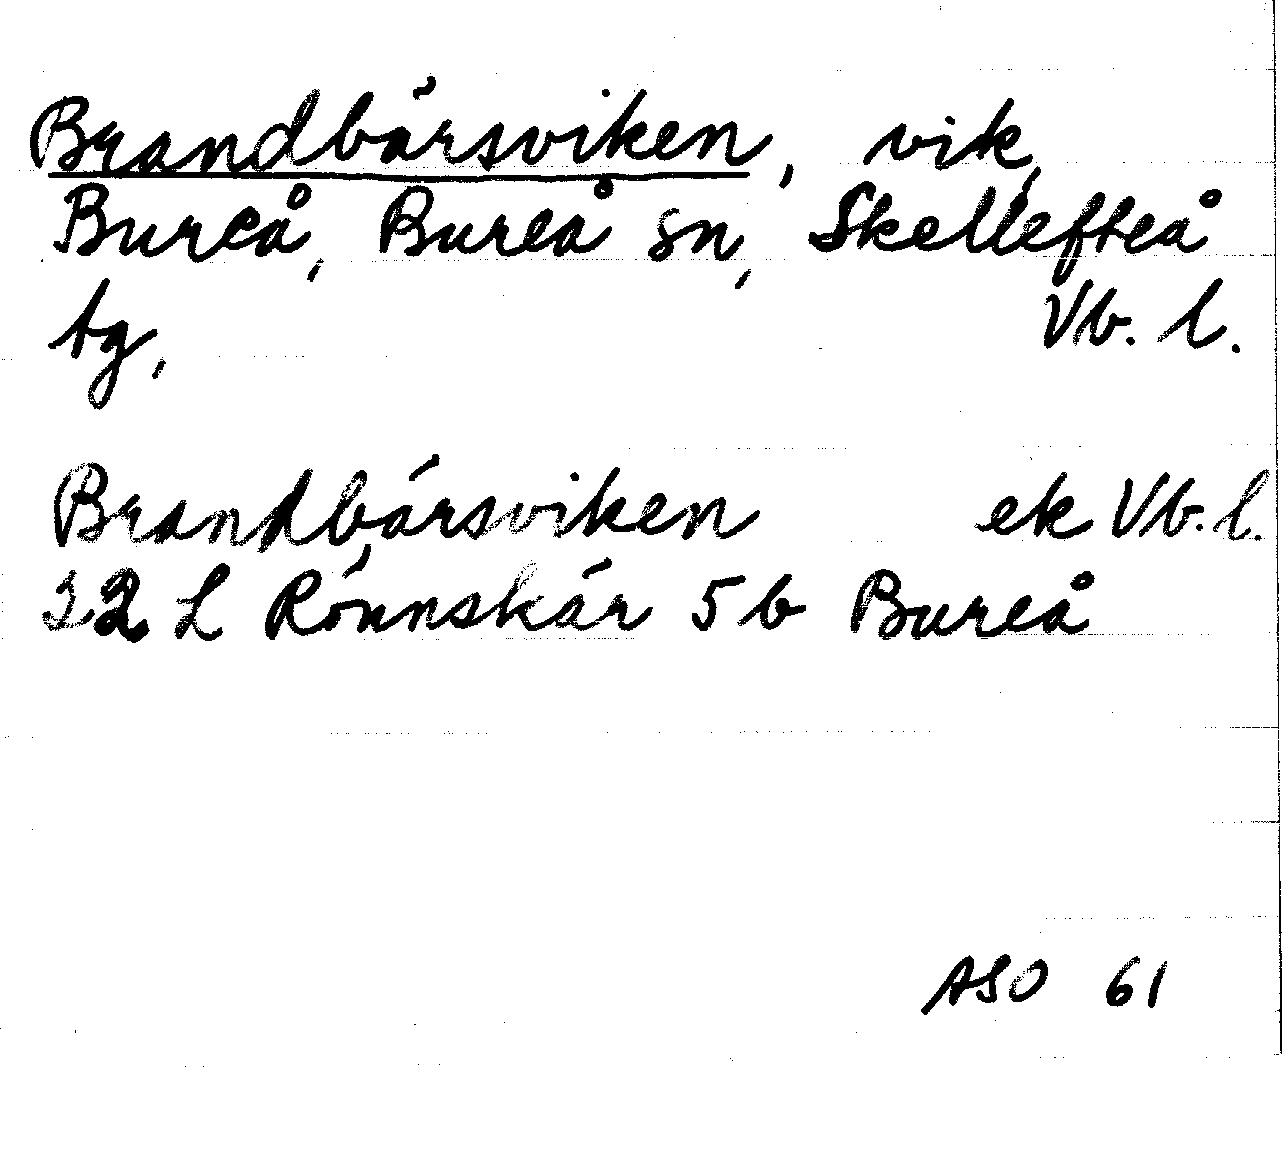 Brandbärsviken, vik,
Bureå, Bureå sn, Skellefteå
tg, Vb. l.
Brandbärsviken ek Vb. l.
22 L Rönnskär 5 b Bureå
ASO 61